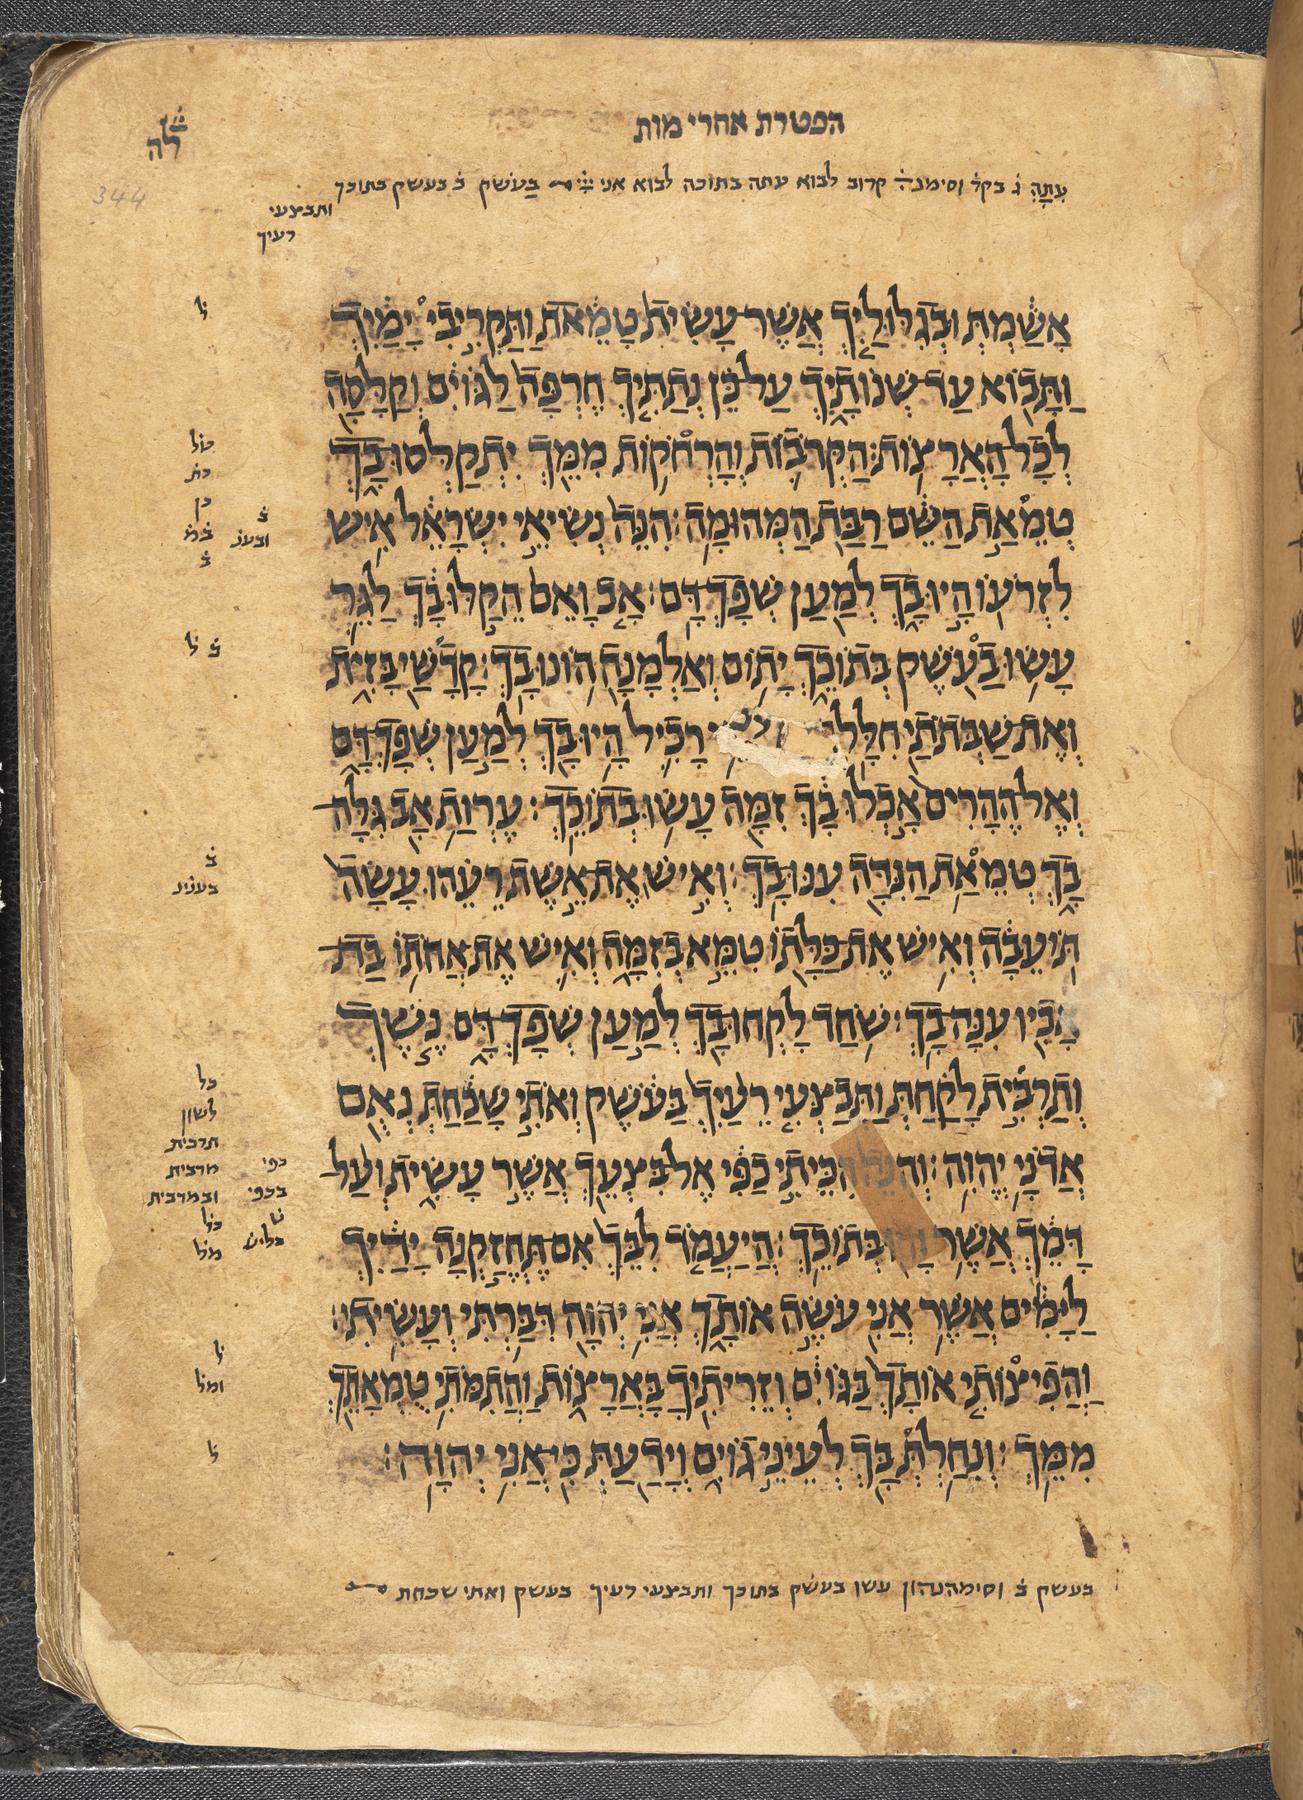 הפטרת אחרי מות
לה
344
עִתָּהּ ג בקר וסימנה קרוב לבוא עתה בתוכה לבוא אני בַעֹשֶק ב בעשק בתוכך
ותבצעי
רעיך
אָשַׁמְתְּ וּבְגִלּוּלַיִךְ אֲשֶׁר עָשִׂית טָמֵאת וַתַּקְרִיבִי יָמַיִךְ
וַתָּבוֹא עַד שְׁנוֹתָיִךְ עַל כֵּן נְתַתִּיךְ חֶרְפָּה לַגּוֹיִם וְקַלָּסָה
לְכָל הָאֲרָצוֹת׃ הַקְּרֹבוֹת וְהָרְחֹקוֹת מִמֵּךְ יִתְקַלְּסוּ בָךְ
טְמֵאַת הַשֵּׁם רַבַּת הַמְּהוּמָה׃ הִנֵּה נְשִׂיאֵי יִשְׂרָאֵל אִישׁ
לִזְרֹעוֹ הָיוּ בָךְ לְמַעַן שְׁפָךְ דָּם׃ אָב וָאֵם הֵקַלּוּ בָךְ לַגֵּר
עָשׂוּ בַעֹשֶׁק בְּתוֹכֵךְ יָתוֹם וְאַלְמָנָה הוֹנוּ בָךְ׃ קָדָשַׁי בָּזִית
וְאֶת שַׁבְּתֹתַי חִלָּלְ רָכִיל הָיוּ בָךְ לְמַעַן שְׁפָךְ דָּם
וְאֶל הֶהָרִים אָכְלוּ בָךְ זִמָּה עָשׂוּ בְתוֹכֵךְ׃ עֶרְוַת אָב גִּלָּה
בָךְ טְמֵאַת הַנִּדָּה עִנּוּ בָךְ׃ וְאִישׁ אֶת אֵשֶׁת רֵעֵהוּ עָשָׂה
תּוֹעֵבָה וְאִישׁ אֶת כַּלָּתוֹ טִמֵּא בְזִמָּה וְאִישׁ אֶת אֲחֹתוֹ בַת
אָבִיו עִנָּה בָךְ׃ שֹׁחַד לָקְחוּ בָךְ לְמַעַן שְׁפָךְ דָּם נֶשֶׁךְ
וְתַרְבִּית לָקַחַתְּ וַתְּבַצְּעִי רֵעַיִךְ בַּעֹשֶׁק וְאֹתִי שָׁכַחַתְּ נְאֻם
אֲדֹנָי יֱהוִה׃ וְהִנֵּה הִכֵּיתִי כַפִּי אֶל בִּצְעֵךְ אֲשֶׁר עָשִׂית וְעַל
דָּמֵךְ אֲשֶׁר הָיוּ בְּתוֹכֵךְ׃ הֲיַעֲמֹד לִבֵּךְ אִם תֶּחֱזַקְנָה יָדַיִךְ
לַיָּמִים אֲשֶׁר אֲנִי עֹשֶׂה אוֹתָךְ אֲנִי יְהוָה דִּבַּרְתִּי וְעָשִׂיתִי׃
וַהֲפִיצוֹתִי אוֹתָךְ בַּגּוֹיִם וְזֵרִיתִיךְ בָּאֲרָצוֹת וַהֲתִמֹּתִי טֻמְאָתֵךְ
מִמֵּךְ׃ וְנִחַלְתְּ בָּךְ לְעֵינֵי גוֹיִם וְיָדַעַתְּ כִּי אֲנִי יְהוָה׃
ל
ב
ב ל
ב
בענינ
כל
לשון
תרבית
מרבית
ובמרבית
כפי
בכפי
ל
ומל
ל
בעשק ב וסימהנהון עשו בעשק בתוכך ותבצעי רעיך בעשק ואתי שכחת